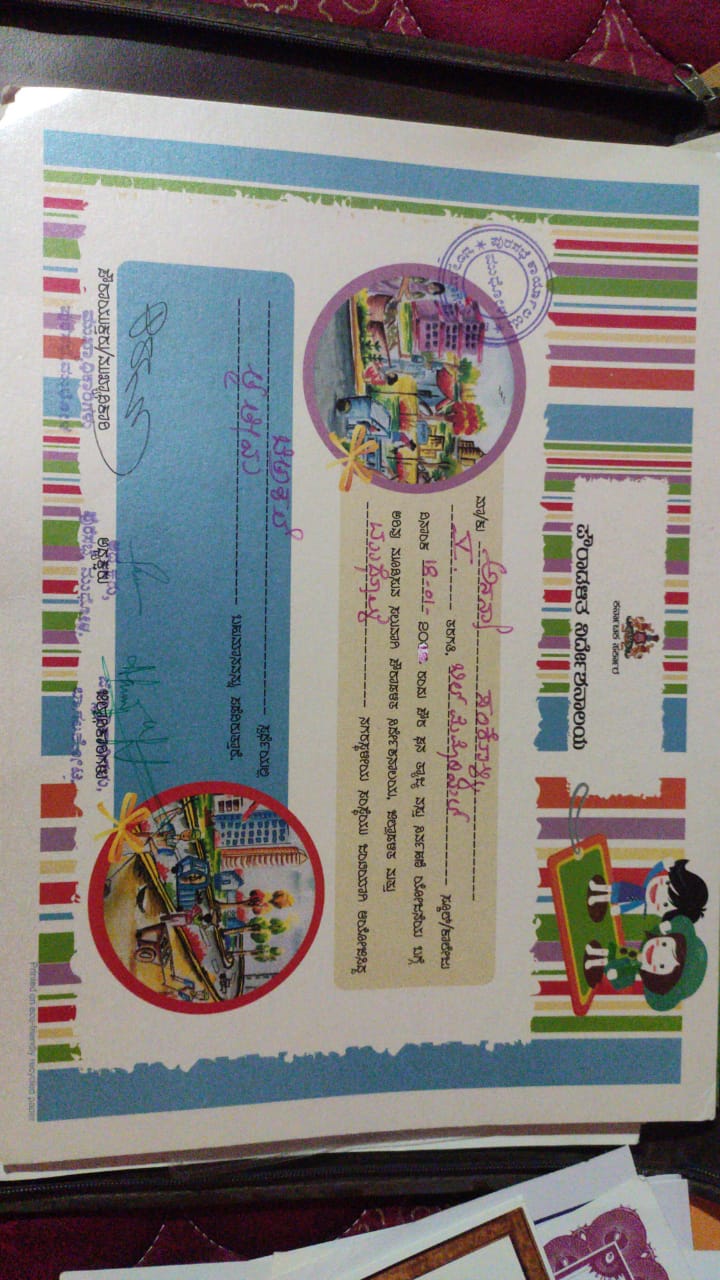 ಕರ್ನಾಟಕ ಸರ್ಕಾರ
ಪೌರಾಡಳಿತ ನಿರ್ದೇಶನಾಲಯ
ಪುರಸಭೆ ಕಾರ್ಯಾಲಯ
ಮುಧೋಳ
ಮಾ/ಕು ಅನನ್ಯಾ
V. ತರಗತಿ, ಬಿಲ್ ಮೆಮೋರಿಯಲ್ ಸ್ಕೂಲ್/ಕಾಲೇಜು
ದಿನಾಂಕ 18-01- ರಂದು ಪೌರ ಘನ ತ್ಯಾಜ್ಯ ವಸ್ತು ನಿರ್ವಹಣೆ ಯೋಜನೆಯ ಬಗ್ಗೆ
ಅರಿವು ಮೂಡಿಸುವ ಸಲುವಾಗಿ ಪೌರಾಡಳಿತ ನಿರ್ದೇಶನಾಲಯ, ಜಿಲ್ಲಾಡಳಿತ ಮತ್ತು
ಮುಧೋಳ ನಗರಸ್ಥಳೀಯ ಸಂಸ್ಥೆಯು ಜಂಟಿಯಾಗಿ ಆಯೋಜಿಸಿದ್ದ
ಚಿತ್ರಕಲೆ ಸ್ಪರ್ಧೆಯಲ್ಲಿ
ತೃತೀಯ ಬಹುಮಾನವನ್ನು ಪಡೆದಿರುತ್ತಾರೆ.
ಪೌರಾಯುಕ್ತರು/ಮುಖ್ಯಾಧಿಕಾರಿ ಅಧ್ಯಕ್ಷರು ಜಿಲ್ಲಾಧಿಕಾರಿಗಳು
ಮುಖ್ಯಾಧಿಕಾರಿಗಳು ಅಧ್ಯಕ್ಷರು, ಜಿಲ್ಲಾಧಿಕಾರಿಗಳು,
ಪುರಸಭೆ ಮುಧೋಳ ಪುರಸಭೆ, ಮುಧೋಳ. ಬಾಗಲಕೋಟೆ.
Printed on eco-friendly recycled paper